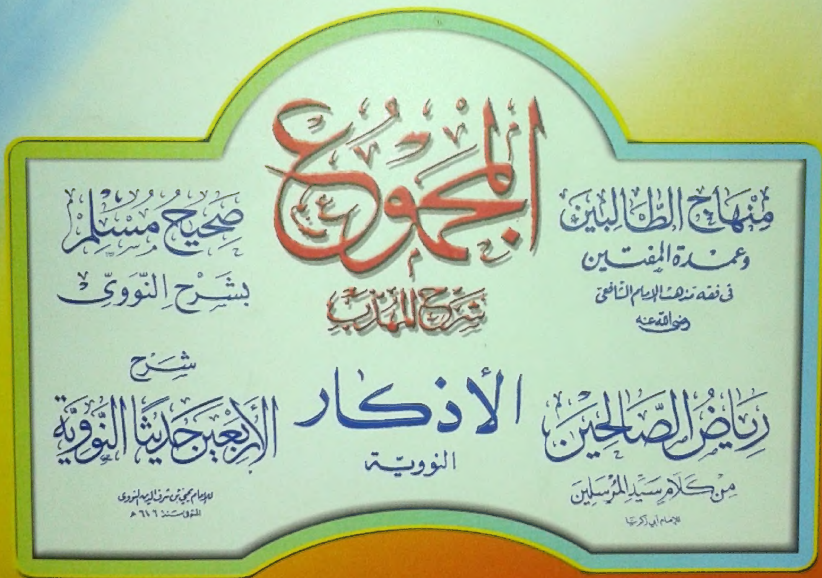 المجموع
شرح المهذب
منهاج الطالبين
وعمدة المفتين
في فقه مذهب الإمام الشافعي
رضي الله عنه
صَحِيحُ مُسْلِم
بشَرْح النَّوَوِيّ
رياضُ الصَّالحين
مِن كَلَام سَيِّد المُرْسَلين
للإمام أبي زكريا
الأذكار
النووية
شرح
الأربعين حديثا النَّوويَّة
للإمام يحيى بن شرف الدين النووى
المتوفى سنة ٦٧٦ هـ